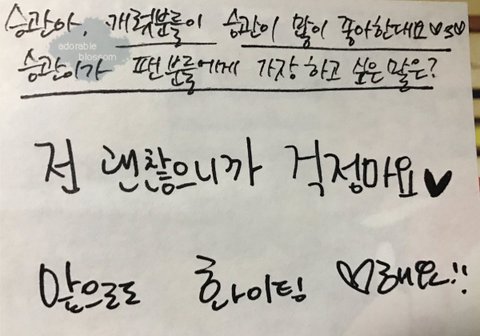 승관아, 캐럿분들이 승관이 많이 좋아한대요♡s♡
승관이가 팬분들에게 가장 하고 싶은 말은?
adorable
blossom
전 괜찮으니까 걱정마요♥
앞으로도 화이팅 ♡해요!!